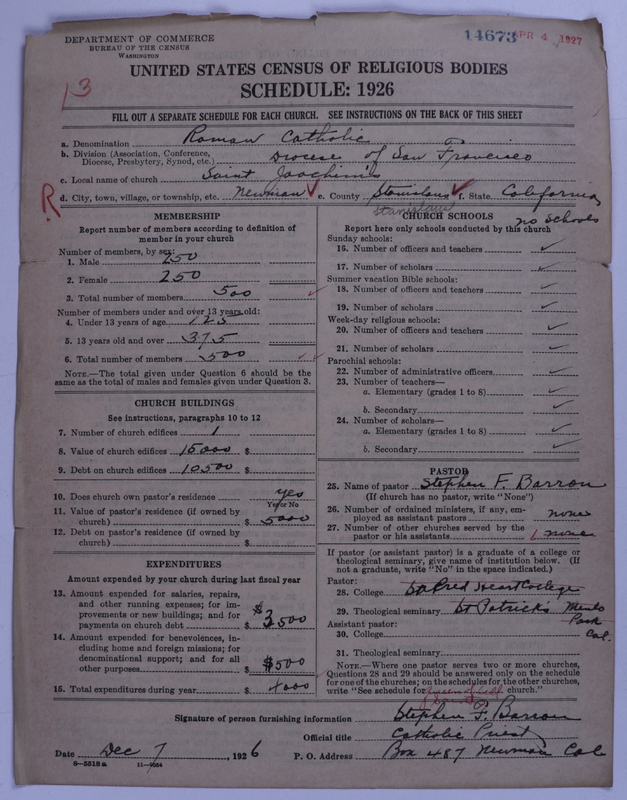 DEPARTMENT OF COMMERCE
BUREAU OF THE CENSUS
WASHINGTON
14673 APR 4 1927
13
UNITED STATES CENSUS OF RELIGIOUS BODIES
SCHEDULE: 1926
FILL OUT A SEPARATE SCHEDULE FOR EACH CHURCH. SEE INSTRUCTIONS ON THE BACK OF THIS SHEET
a. Denomination Roman Catholic
b. Division (Association, Conference, Diocese, Presbytery, Synod, etc.) Diocese of San Francisco
c. Local name of church Saint Joachim's
R d. City, town, village, or township, etc. Newman e. County Stanislaus f. State California
Stanislaus
MEMBERSHIP
Report number of members according to definition of
member in your church
Number of members, by sex:
1. Male 250
2. Female 250
3. Total number of members 500
Number of members under and over 13 years old:
4. Under 13 years of age 125
5. 13 years old and over 375
6. Total number of members 500
NOTE.—The total given under Question 6 should be the
same as the total of males and females given under Question 3.
CHURCH BUILDINGS
See instructions, paragraphs 10 to 12
7. Number of church edifices 1
8. Value of church edifices 15000 $
9. Debt on church edifices 10500 $
10. Does church own pastor's residence yes
Yes or No
11. Value of pastor's residence (if owned by
church) $ 5000
12. Debt on pastor's residence (if owned by
church) $
EXPENDITURES
Amount expended by your church during last fiscal year
13. Amount expended for salaries, repairs,
and other running expenses; for im-
provements or new buildings; and for
payments on church debt $ $3500
14. Amount expended for benevolences, in-
cluding home and foreign missions; for
denominational support; and for all
other purposes $ $500
15. Total expenditures during year $ 4000
CHURCH SCHOOLS
no schools
Report here only schools conducted by this church
Sunday schools:
16. Number of officers and teachers
17. Number of scholars
Summer vacation Bible schools:
18. Number of officers and teachers
19. Number of scholars
Week-day religious schools:
20. Number of officers and teachers
21. Number of scholars
Parochial schools:
22. Number of administrative officers
23. Number of teachers—
a. Elementary (grades 1 to 8)
b. Secondary
24. Number of scholars—
a. Elementary (grades 1 to 8)
b. Secondary
PASTOR
25. Name of pastor Stephen F. Barron
(If church has no pastor, write "None")
26. Number of ordained ministers, if any, em-
ployed as assistant pastors none
27. Number of other churches served by the
pastor or his assistants 1 none
If pastor (or assistant pastor) is a graduate of a college or
theological seminary, give name of institution below. (If
not a graduate, write "No" in the space indicated.)
Pastor:
28. College Sacred Heart College
29. Theological seminary St Patrick's Menlo
Park
Cal.
Assistant pastor:
30. College
31. Theological seminary
NOTE.—Where one pastor serves two or more churches,
Questions 28 and 29 should be answered only on the schedule
for one of the churches; on the schedules for the other churches,
write "See schedule for church."
Signature of person furnishing information Stephen F. Barron
Official title Catholic Priest
Date Dec 7, 1926 P. O. Address Box 487 Newman Cal
8—5518a 11—9054